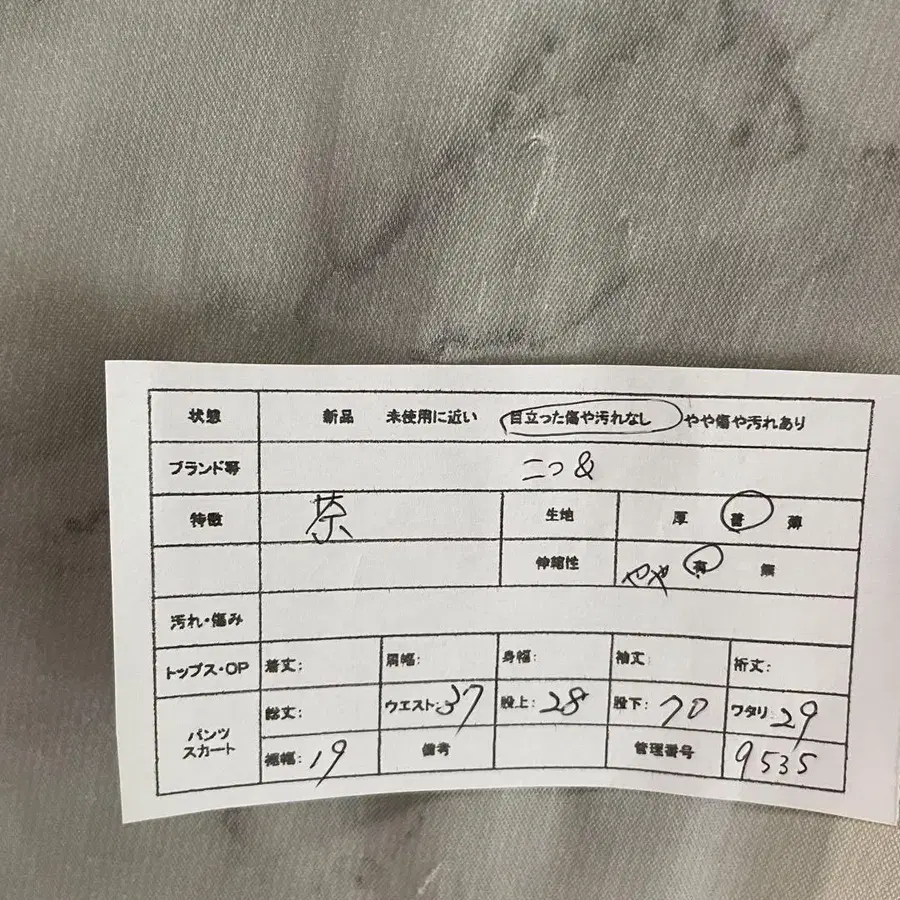 状態 新品 未使用に近い 目立った傷や汚れなし やや傷や汚れあり
ブランド等 二つ&
特徴 茶 生地 厚 普 薄
伸縮性 やや 有 無
汚れ・傷み
トップス・OP 着丈: 肩幅: 身幅: 袖丈: 裄丈:
パンツ スカート 総丈: ウエスト:37 股上:28 股下:70 ワタリ:29
裾幅:19 備考 管理番号 9535